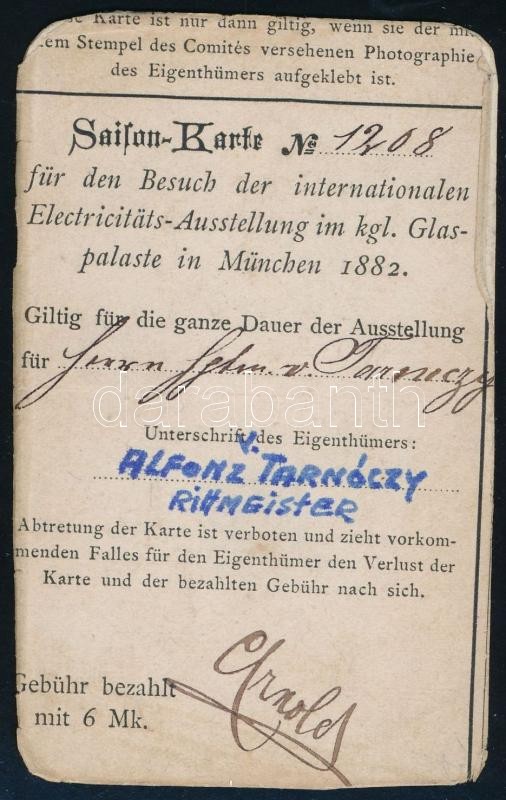 se Karte ist nur dann giltig, wenn sie der mit
em Stempel des Comités versehenen Photographie
des Eigenthümers aufgeklebt ist.
Saison-Karte No 1208
für den Besuch der internationalen
Electricitäts-Ausstellung im kgl. Glas-
palaste in München 1882.
Giltig für die ganze Dauer der Ausstellung
für Herrn v. Tarnoczy
darabanth
Unterschrift des Eigenthümers:
v.
ALFONZ TARNÓCZY
RITTMEISTER
Abtretung der Karte ist verboten und zieht vorkom-
menden Falles für den Eigenthümer den Verlust der
Karte und der bezahlten Gebühr nach sich.
Arnold
Gebühr bezahlt
mit 6 Mk.